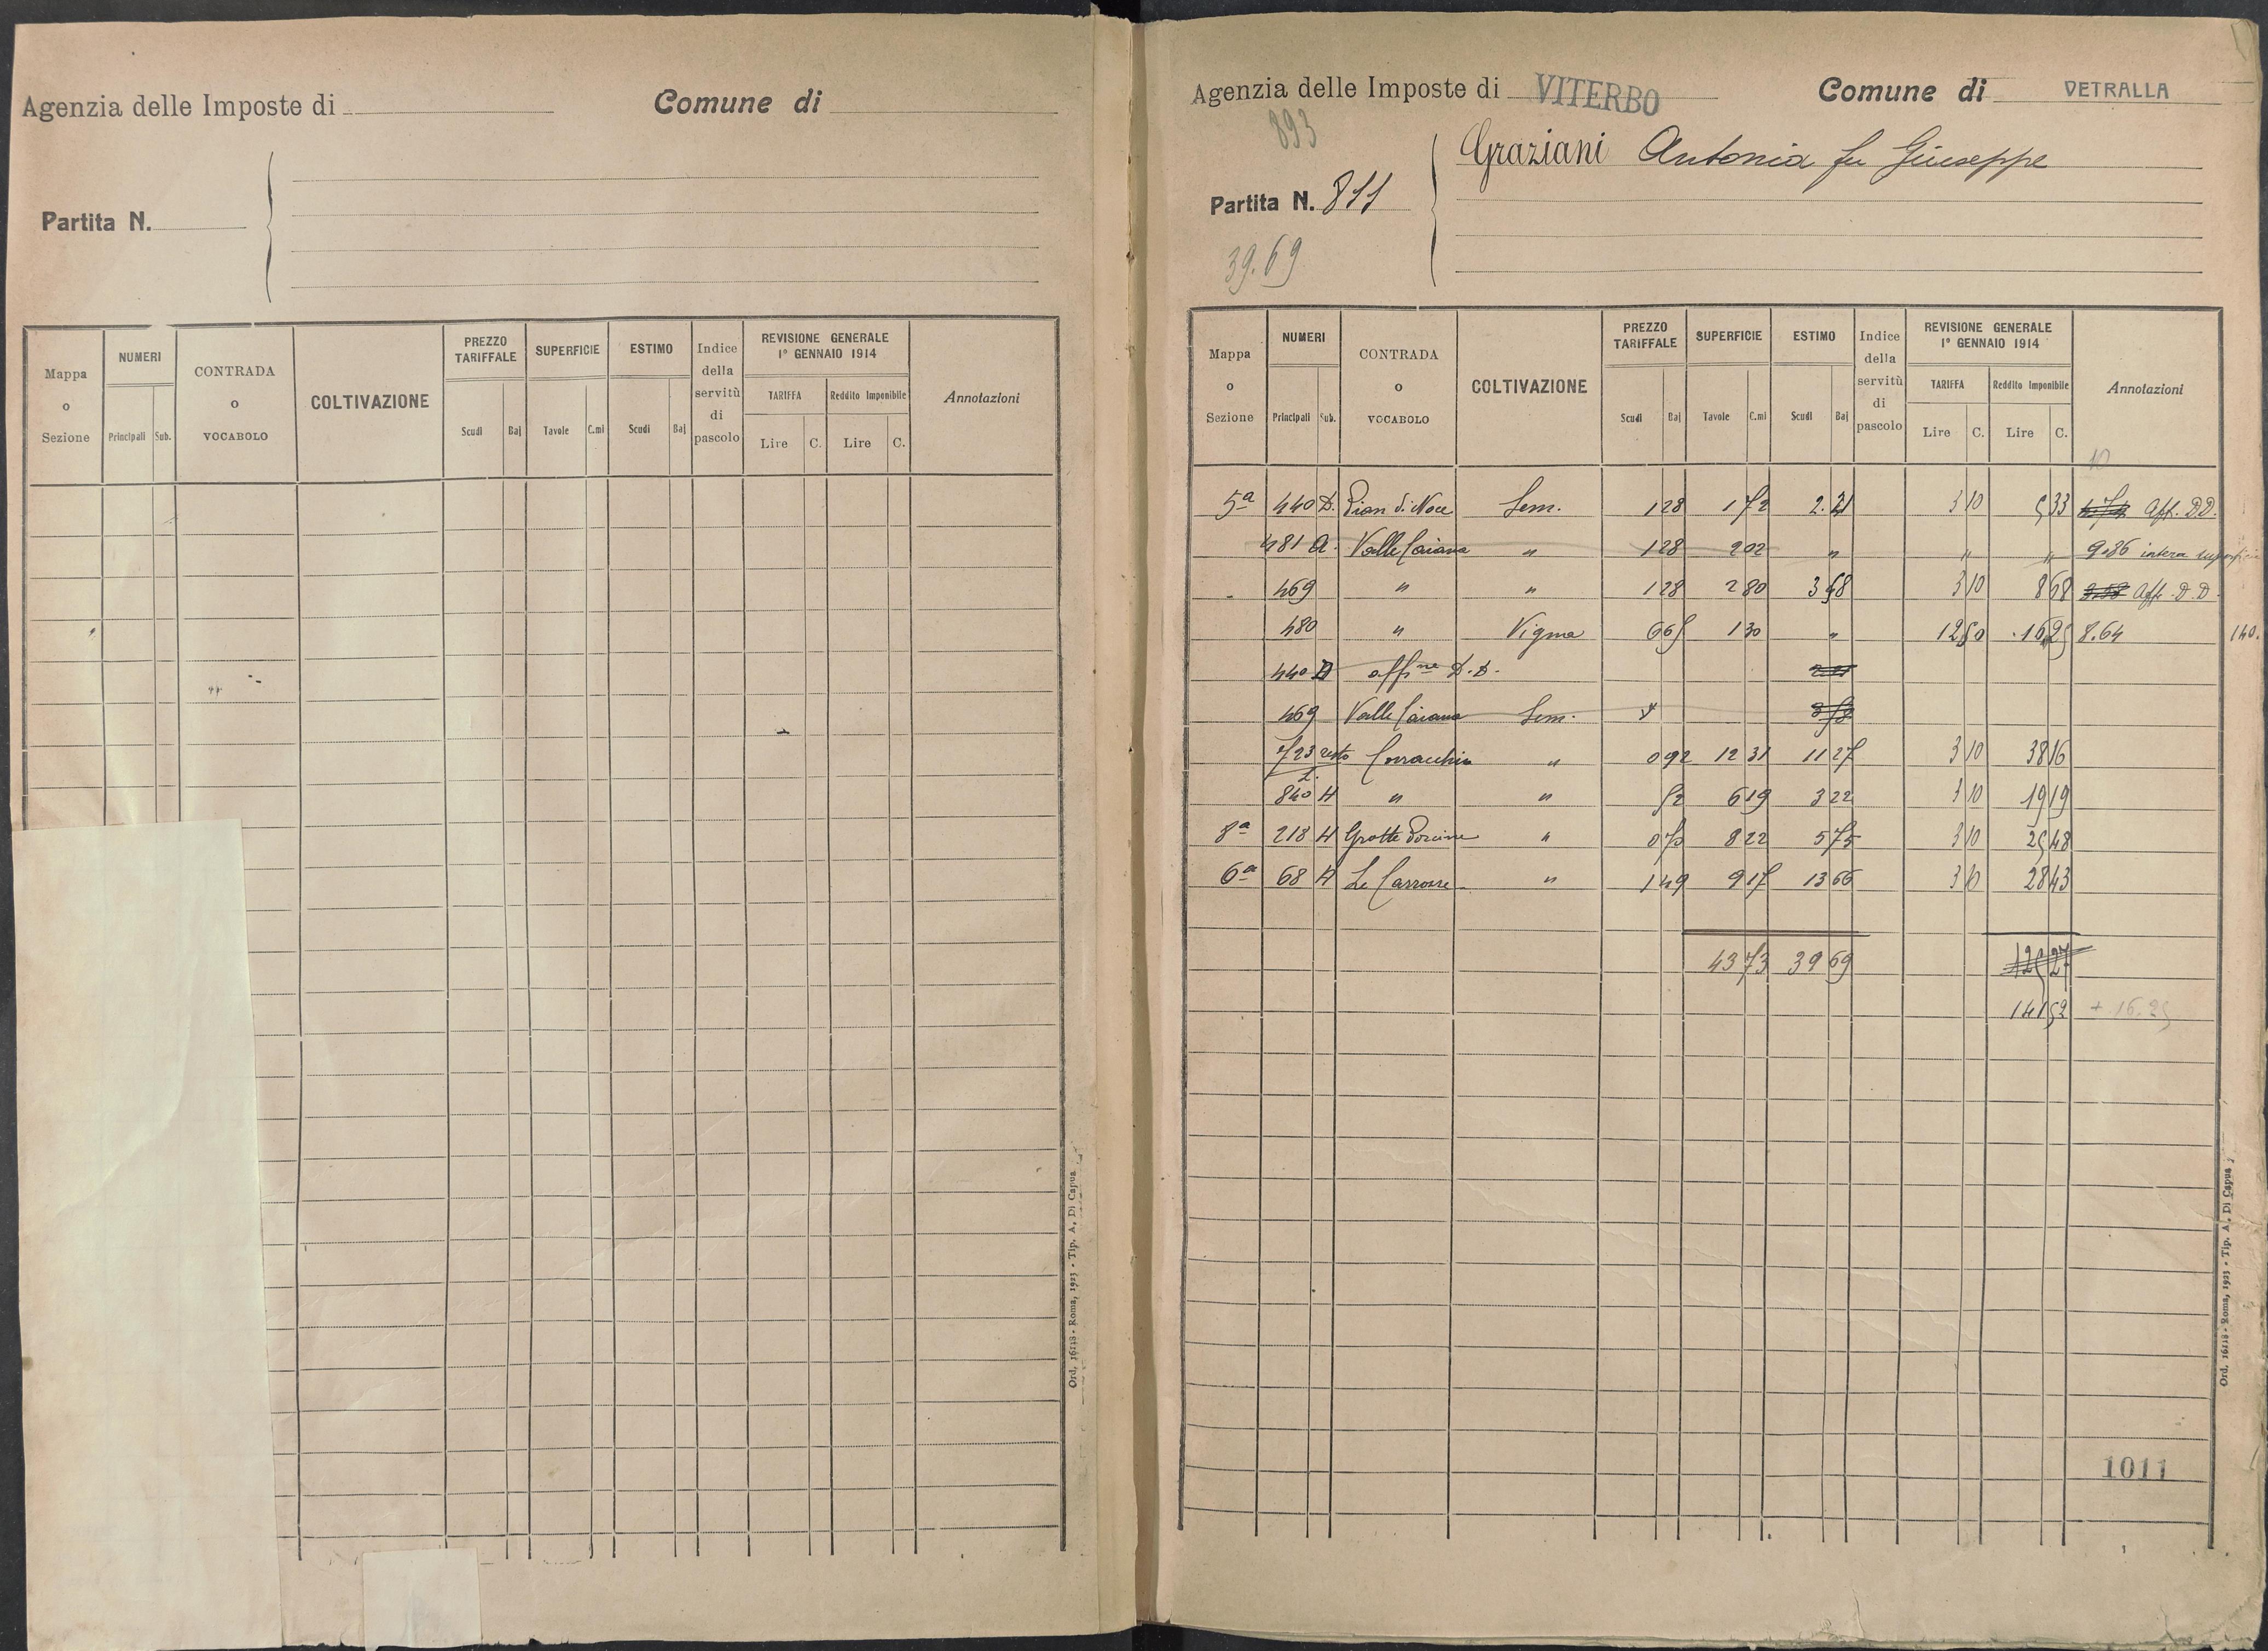 Agenzia delle Imposte di
Comune di
Partita N.
Mappa o Sezione NUMERI CONTRADA o VOCABOLO COLTIVAZIONE PREZZO TARIFFALE SUPERFICIE ESTIMO Indice della servitù di pascolo REVISIONE GENERALE 1° GENNAIO 1914 Annotazioni
TARIFFA Reddito Imponibile
Principali Sub. Scudi Baj Tavole C.mi Scudi Baj Lire C. Lire C.
Ord. 16118 - Roma, 1923 - Tip. A. Di Capua
Agenzia delle Imposte di VITERBO
Comune di VETRALLA
893
Graziani Antonia fu Giuseppe
Partita N. 811
39.69
Mappa o Sezione NUMERI CONTRADA o VOCABOLO COLTIVAZIONE PREZZO TARIFFALE SUPERFICIE ESTIMO Indice della servitù di pascolo REVISIONE GENERALE 1° GENNAIO 1914 Annotazioni
TARIFFA Reddito Imponibile
Principali Sub. Scudi Baj Tavole C.mi Scudi Baj Lire C. Lire C.
10
5ª 440 D. Pian di Noce Sem. 1 28 1 72 2.21 3 10 5 33 Aff. D.D.
481 A. Valle Caiana " 1 28 2 02 " " " 9.86 intera superficie
469 " " 1 28 2 80 3 58 3 10 8 68 Aff. D.D.
480 " Vigna 665 1 30 " 12 50 16 25 8.64 140.
440 D aff.ne D.D. 2 21
469 Valle Caiana Sem. 3 58
723 resto " 0 92 12 31 11 27 3 10 38 16
840 H " " 52 6 19 3 22 3 10 19 19
8ª 218 H Grotte Porcine " 0 70 8 22 5 75 3 10 25 48
6ª 68 H Le Carrozze " 1 49 9 17 13 66 3 10 28 43
43 73 39 69 125 27
141 52 + 16.25
1011
Ord. 16118 - Roma, 1923 - Tip. A. Di Capua